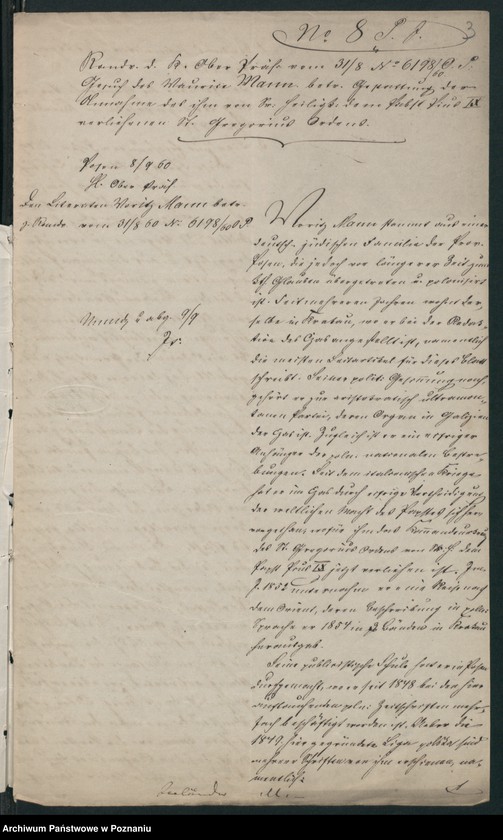 No 8 P. f.
3
Randv. d. K. Ober Präs. vom 31/8 No 6198/60 O. P.
Gesuch des Maurice Mann betr. Gestattung der
Annahme des ihm von Sr. Heiligk. dem Pabst Pius IX
verliehenen St. Gregorius Ordens.
Posen 8/9 60
K. Ober Präs.
Den Literaten Moritz Mann betr.
z. Randv. vom 31/8 60 No. 6198/60 O. P.
Mund. & abg. 9/9
Moritz Mann stammt aus einer
deutsch-jüdischen Familie der Prov.
Posen, die jedoch vor längerer Zeit zum
Glauben übergetreten u. polonisirt
ist. Seit mehreren Jahren wohnt der-
selbe in Krakau, wo er bei der Redak-
tion des Czas angestellt ist, namentlich
die meisten Leitartikel für dieses Blatt
schreibt. Seiner polit. Gesinnung nach
gehört er zur aristokratisch ultramon-
tanen Partei, deren Organ in Galizien
der Czas ist. Zugleich ist er ein eifriger
Anhänger der poln. nationalen Bestre-
bungen. Seit dem italienischen Kriege
hat er im Czas durch eifrige Vertheidigung
der weltlichen Macht des Papstes sich her-
vorgethan, wofür ihm das
des St. Gregorius Ordens von dem
Papst Pius IX jetzt verliehen ist. Im
J. 1852 unternahm er eine Reise nach
dem Orient, deren Beschreibung in poln.
Sprache er 1854 in Bänden in Krakau
herausgab.
Seine publicistische Schule hat er in Posen
durchgemacht, wo er seit 1848 bei den hier
auftauchenden poln. Zeitschriften mehr-
fach beschäftigt worden ist. Ueber die
1849 hier gegründete Liga polska sind
mehrere Schriften von ihm erschienen, na-
mentlich:
Archiwum Państwowe w Poznaniu